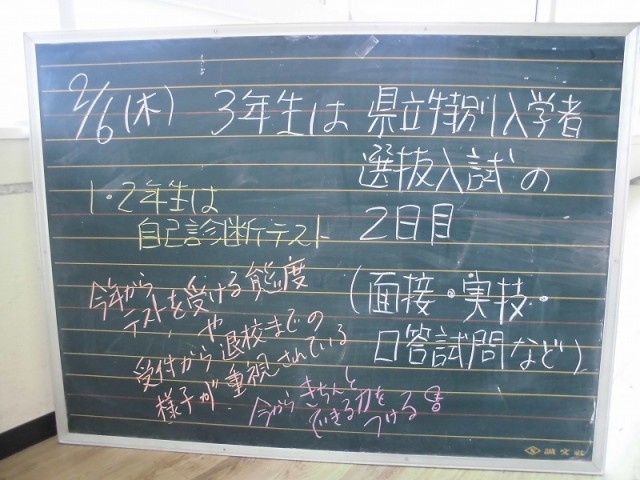 2/6(木) 3年生は 県立特別入学者
選抜入試の
2日目
(面接・実技・
口答試問など)
1・2年生は
自己診断テスト
今年から
テストを受ける態度
や
受付から退校までの
様子が、重視されている
今から きちんと
できる力を
つける
誠文社